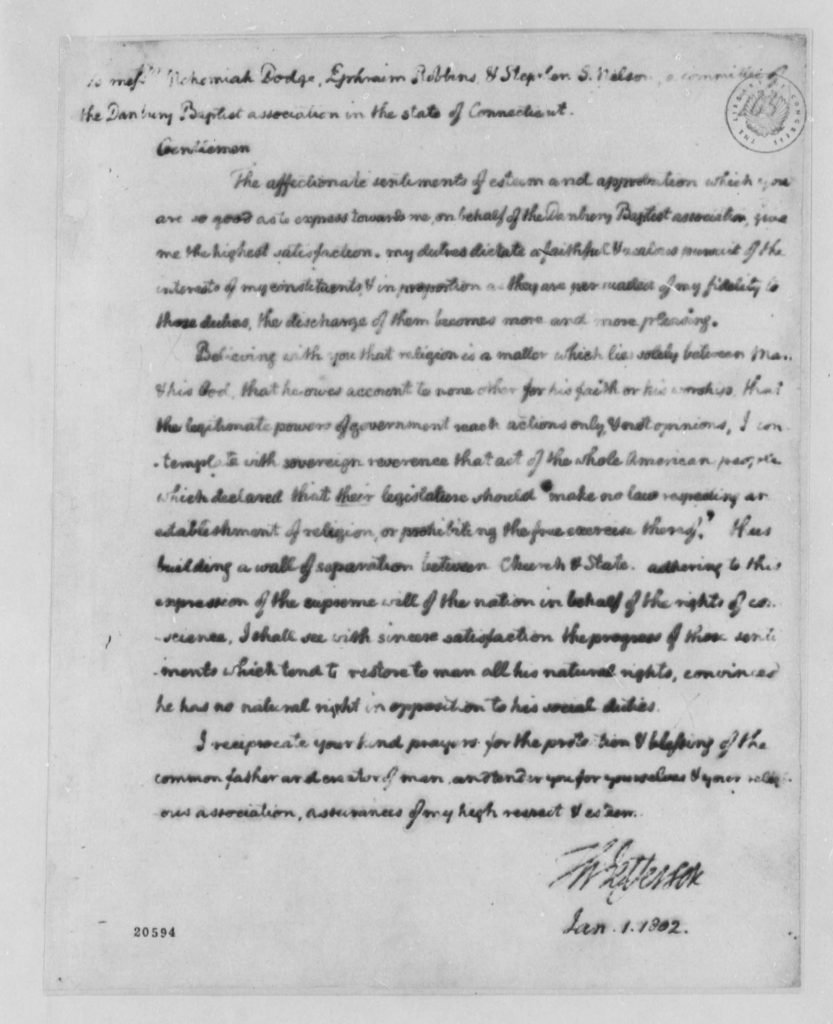 to mess.rs Nehemiah Dodge, Ephraim Robbins, & Stephen S. Nelson, a committee of
the Danbury Baptist association in the state of Connecticut.
THE LIBRARY OF CONGRESS
Gentlemen
The affectionate sentiments of esteem and approbation which you
are so good as to express towards me, on behalf of the Danbury Baptist association, give
me the highest satisfaction. my duties dictate a faithful & zealous pursuit of the
interests of my constituents, & in proportion as they are persuaded of my fidelity to
those duties, the discharge of them becomes more and more pleasing.
Believing with you that religion is a matter which lies solely between Man
& his God, that he owes account to none other for his faith or his worship, that
the legitimate powers of government reach actions only, & not opinions, I con-
-template with sovereign reverence that act of the whole American people
which declared that their legislature should "make no law respecting an
establishment of religion, or prohibiting the free exercise thereof," thus
building a wall of separation between Church & State. adhering to this
expression of the supreme will of the nation in behalf of the rights of con-
-science, I shall see with sincere satisfaction the progress of those senti
-ments which tend to restore to man all his natural rights, convinced
he has no natural right in opposition to his social duties.
I reciprocate your kind prayers for the protection & blessing of the
common father and creator of man, and tender you for yourselves & your religi
-ous association, assurances of my high respect & esteem.
Th Jefferson
Jan. 1. 1802.
20594